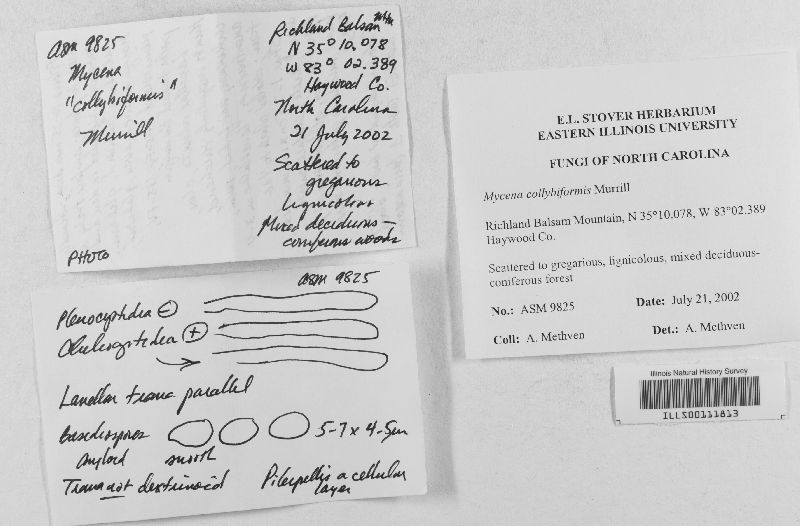 ASM 9825
Mycena
"collybiformis"
Murrill
PHOTO
Richland Balsam Mtn
N 35° 10.078
W 83° 02.389
Haywood Co.
North Carolina
21 July 2002
Scattered to
gregarious
lignicolous
Mixed deciduous –
coniferous woods
ASM 9825
Pleurocystidia ⊖
Cheilocystidia ⊕
Lamellar trama parallel
Basidiospores 5-7 x 4-5μm
amyloid smooth
Trama not dextrinoid
Pileipellis a cellular
layer
E.L. STOVER HERBARIUM
EASTERN ILLINOIS UNIVERSITY
FUNGI OF NORTH CAROLINA
Mycena collybiformis Murrill
Richland Balsam Mountain, N 35°10.078, W 83°02.389
Haywood Co.
Scattered to gregarious, lignicolous, mixed deciduous-
coniferous forest
No.: ASM 9825 Date: July 21, 2002
Coll: A. Methven Det.: A. Methven
Illinois Natural History Survey
ILLS00111813